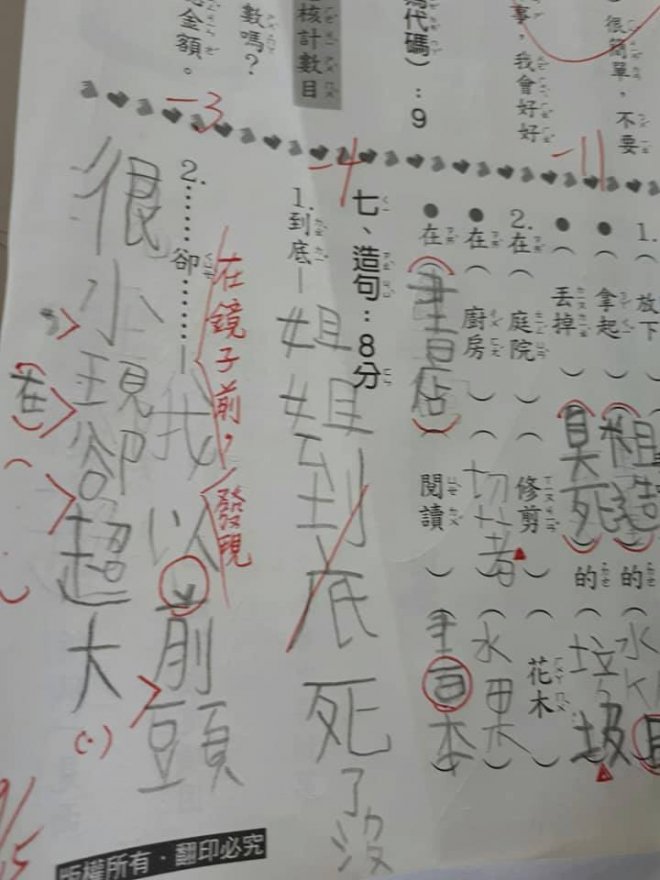 很簡單,不要
事,我會好好
代碼):9
核計數目
數嗎?
金額。
-11
-4
-3
1. 放下
(拿起)(粗造)的(水
(丟掉)(臭死)的(垃圾)
2. 在(庭院)(修剪)(花木)
在(廚房)(切著)(水果)
在(書店)(閱讀)(書本)
七、造句:8分
1. 到底—姐姐到底死了沒
在鏡子前,發現
2. ……卻……—我以前頭
很小現卻超大
在
版權所有.翻印必究